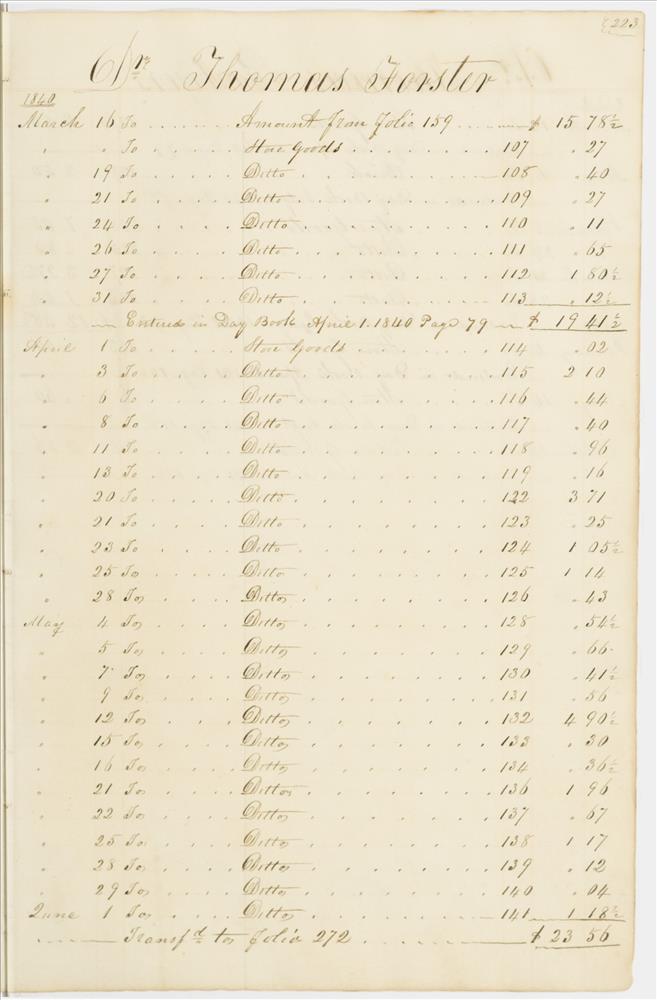 223
Dr. Thomas Forster
1840
March 16 To ...... Amount from folio 159 ...... $ 15 78½
" " To ...... Store Goods ........ 107 . 27
" 19 To ..... Ditto ........ 108 . 40
" 21 To ..... Ditto ........ 109 . 27
" 24 To ..... Ditto ........ 110 . 11
" 26 To ..... Ditto ........ 111 . 65
" 27 To ..... Ditto ........ 112 1 80½
" 31 To ..... Ditto ........ 113 . 12½
— Entered in Day Book April 1. 1840 Page 79 — $ 19 41½
April 1 To ..... Store Goods ........ 114 . 02
" 3 To ..... Ditto ........ 115 2 10
" 6 To ..... Ditto ........ 116 . 44
" 8 To ..... Ditto ........ 117 . 40
" 11 To ..... Ditto ........ 118 . 96
" 13 To ..... Ditto ........ 119 . 16
" 20 To ..... Ditto ........ 122 3 71
" 21 To ..... Ditto ........ 123 . 25
" 23 To ..... Ditto ........ 124 1 05½
" 25 To ..... Ditto ........ 125 1 14
" 28 To ..... Ditto ........ 126 . 43
May 4 To ..... Ditto ........ 128 . 54½
" 5 To ..... Ditto ........ 129 . 66
" 7 To ..... Ditto ........ 130 . 41½
" 9 To ..... Ditto ........ 131 . 56
" 12 To ..... Ditto ........ 132 4 90½
" 15 To ..... Ditto ........ 133 . 30
" 16 To ..... Ditto ........ 134 . 36½
" 21 To ..... Ditto ........ 136 1 96
" 22 To ..... Ditto ........ 137 . 67
" 25 To ..... Ditto ........ 138 1 17
" 28 To ..... Ditto ........ 139 . 12
" 29 To ..... Ditto ........ 140 . 04
June 1 To ..... Ditto ........ 141 1 18½
— Transfd to folio 272 ........ $ 23 56